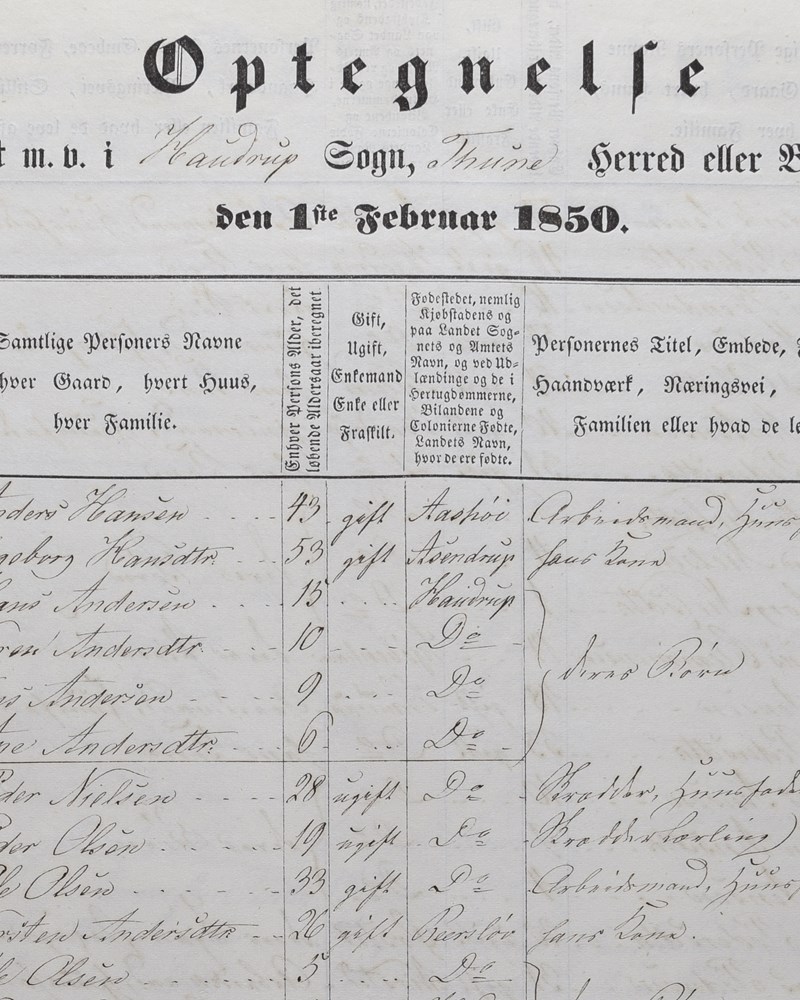 Optegnelse
m. v. i Haudrup Sogn, Thune Herred eller
den 1ste Februar 1850.
Samtlige Personers Navne
hver Gaard, hvert Huus,
hver Familie.
Enhver Persons Alder, det
løbende Aldersaar iberegnet
Gift,
Ugift,
Enkemand
Enke eller
Fraskilt.
Fødestedet, nemlig
Kjøbstadens og
paa Landet Sog-
nets og Amtets
Navn, og ved Ud-
lændinge og de i
Hertugdømmerne,
Bilandene og
Colonierne Fødte,
Landets Navn,
hvor de ere fødte.
Personernes Titel, Embede,
Haandværk, Næringsvei,
Familien eller hvad de
Hansen 43 gift Aashøi Arbeidsmand,
Hansdtr. 53 gift Asendrup hans Kone
Andersen 15 Haudrup
Andersdtr. 10 Do
Andersen 9 Do
Andersdtr. 6 Do
deres Børn
Nielsen 28 ugift Do Skrædder,
Olsen 19 ugift Do Skrædderlærling
Olsen 33 gift Do Arbeidsmand,
Andersdtr. 26 gift Reersløv hans Kone.
Olsen 5 Do